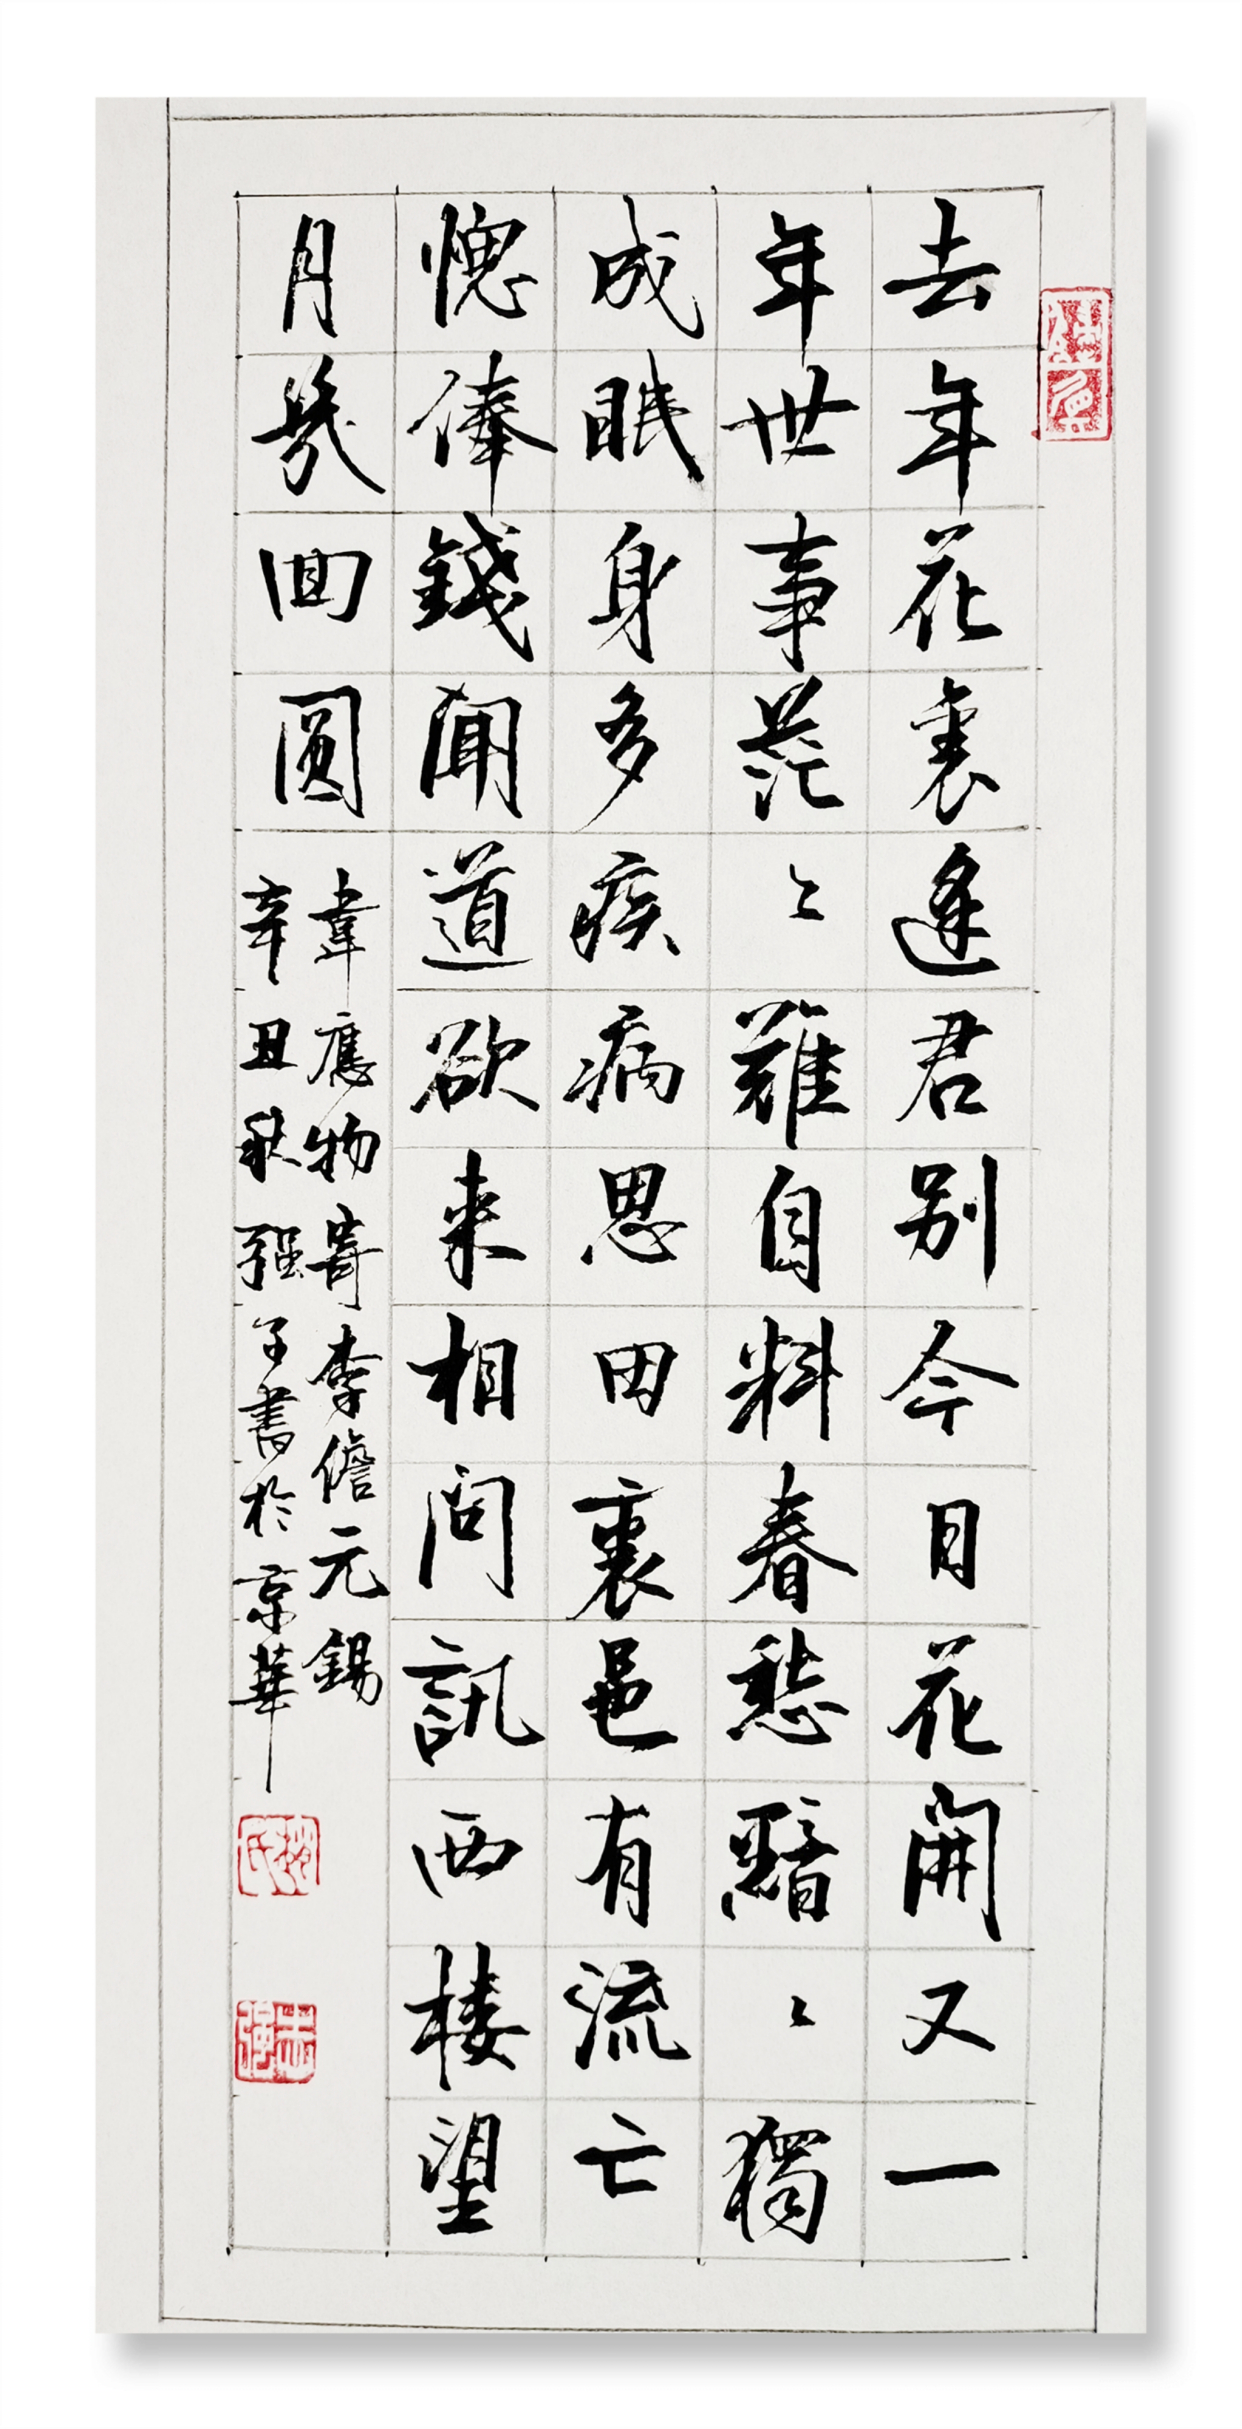 去年花裏逢君别今日花開又一
年世事茫〻難自料春愁黯〻獨
成眠身多疾病思田裏邑有流亡
愧俸錢聞道欲来相問訊西楼望
月幾囬圓
韋應物寄李儋元錫
辛丑秋强子書於京華
志强